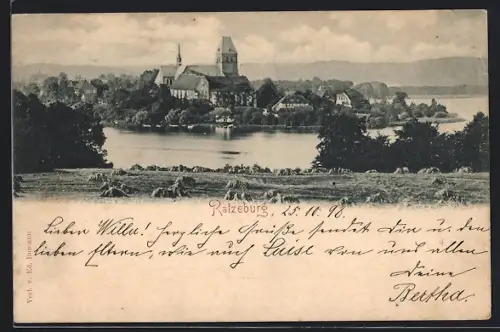 Ratzeburg, 25.10.98.
Lieber Willu! Herzliche Grüße sendet Dir u den
lieben Eltern, wie auch Luise von uns allen
Deine
Bertha.
Verl. v. Ed. Baumann